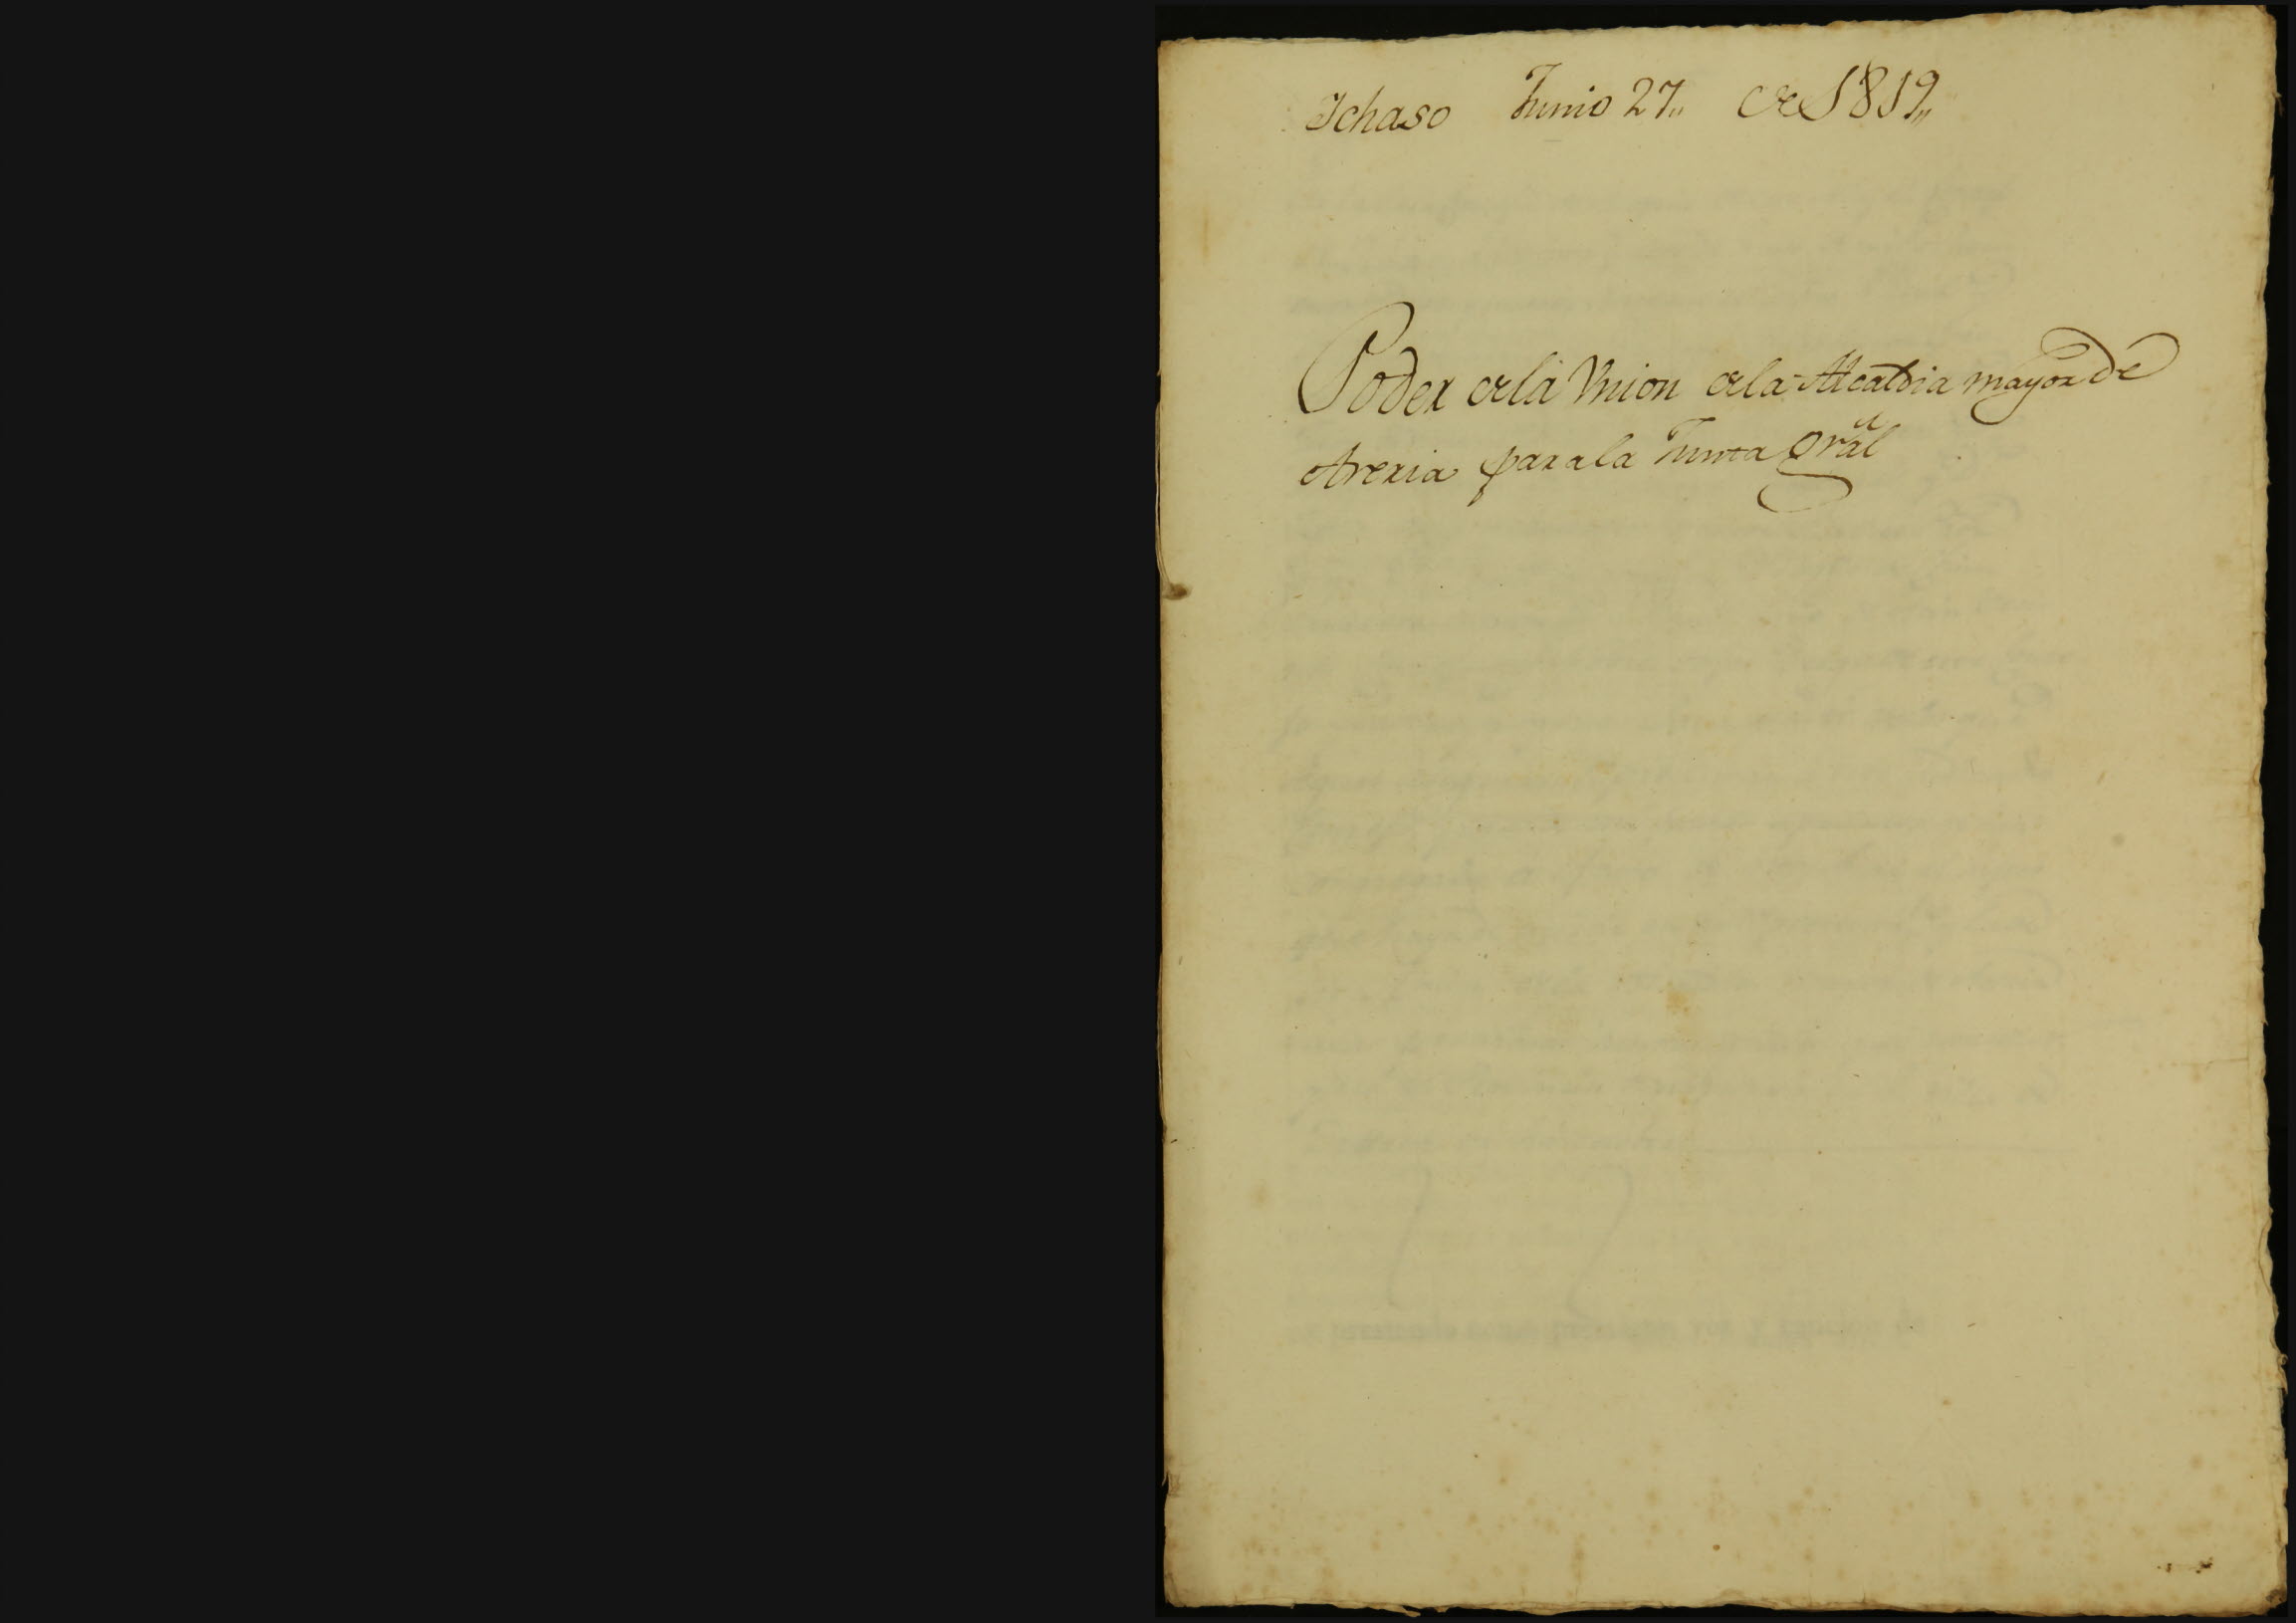 Ichaso Junio 27,, de 1819,,
Poder de la Vnion de la Alcaldia mayor de
Areria para la Junta Gral